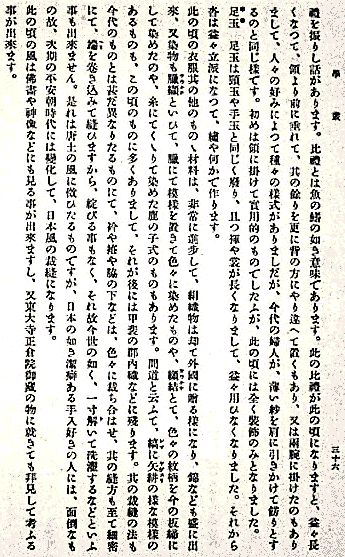 學
三十六
禮を振りし話があります。比禮とは魚の鰭の如き意味であります。此の比禮が此の頃になりますと、益々長
くなつて、領より前に垂れて、其の餘りを更に背の方にやり違へて置くもあり、又は兩腕に掛けたのもあり
まして、人々の好みによつて種々の樣式がありましだが、今代の婦人が、薄い紗を肩に引きかけて飾りとす
るのと同じ樣です。初めは領に掛けて實用的のものでしたふが、此の頃には全く裝飾のみとなりました。
足玉　足玉は頸玉や手玉と同じく廢り、且つ褌や裳が長くなりまして、益々用ひなくなりました。それから
沓は益々立派になつて、繡や何かで作ります。
此の頃の衣服其の他のものゝ材料は、非常に進步して、絹織物は却て外國に贈る樣になり、錦なども盛に出
來、又染物も臈纈といひて、臈にて模樣を置きて色々に染めたのや、纐結とて、色々の紋柄を今の板締に
して染めたのや、糸にてくゝりて染めた鹿の子式のものもあります。間道と云ふて、縞に矢絣の樣な模樣の
あるものも、この頃のものに多くありまして、それが後には甲斐の郡內織などに殘ります。其の裁縫の法も
今代のものとは甚だ異なりたるものにて、衿や袵や脇の下などは、色々に裁ち合はせ、其の縫方も至て細密
にて、端を卷き込みて縫ひますから、綻びる事もなく、それ故今世の如く、一寸解いて洗濯するなどといふ
事も出來ません。是れは唐土の風に傚ひたるものですが、日本の如き潔癖ある手入好きの人には、面倒なも
の故、次期の平安朝時代には變化して、日本風の裁縫になります。
此の頃の風は佛畫や神像などにも見る事が出來ますし、又東大寺正倉院御藏の物に就きても拜見して考ふる
事が出來ます。